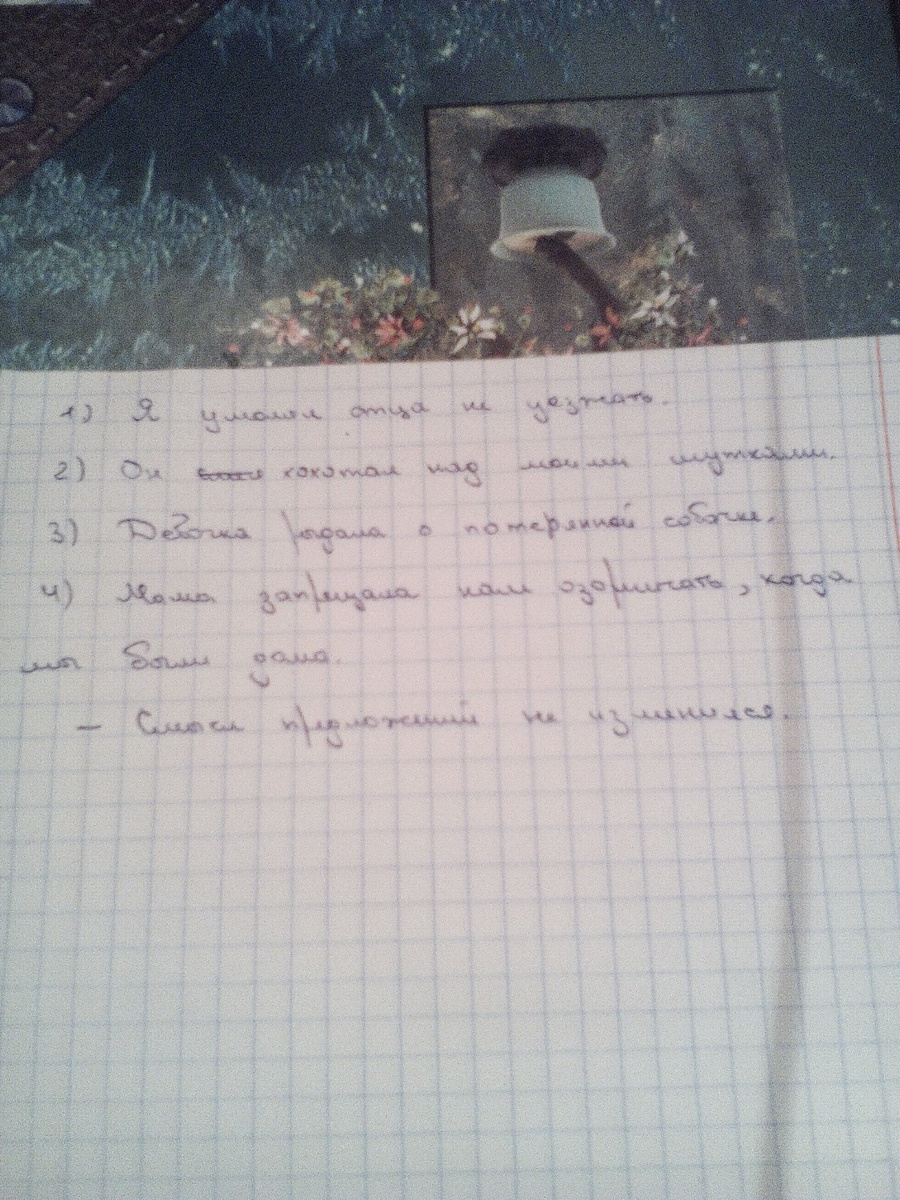 1) Я умолял отца не уезжать.
2) Он хохотал над моими шутками.
3) Девочка рыдала о потерянной собачке.
4) Мама запрещала нам озорничать, когда
мы были дома.
- Смысл предложений не изменился.